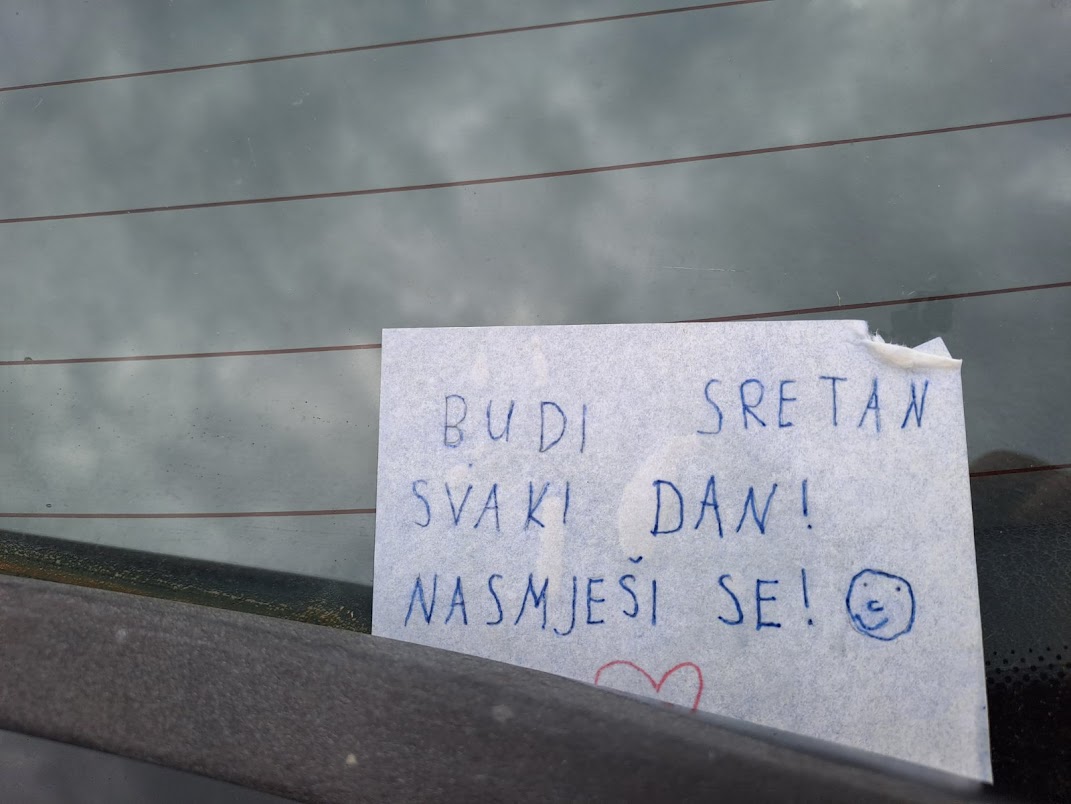 BUDI SRETAN
SVAKI DAN!
NASMJEŠI SE!